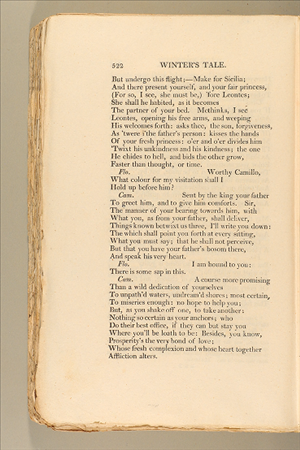 522 WINTER'S TALE.
But undergo this flight;—Make for Sicilia;
And there present yourself, and your fair princess,
(For so, I see, she must be,) 'fore Leontes;
She shall be habited, as it becomes
The partner of your bed. Methinks, I see
Leontes, opening his free arms, and weeping
His welcomes forth: asks thee, the son, forgiveness,
As 'twere i'the father's person: kisses the hands
Of your fresh princess: o'er and o'er divides him
'Twixt his unkindness and his kindness; the one
He chides to hell, and bids the other grow,
Faster than thought, or time.
Flo. Worthy Camillo,
What colour for my visitation shall I
Hold up before him?
Cam. Sent by the king your father
To greet him, and to give him comforts. Sir,
The manner of your bearing towards him, with
What you, as from your father, shall deliver,
Things known betwixt us three, I'll write you down:
The which shall point you forth at every sitting,
What you must say; that he shall not perceive,
But that you have your father's bosom there,
And speak his very heart.
Flo. I am bound to you:
There is some sap in this.
Cam. A course more promising
Than a wild dedication of yourselves
To unpath'd waters, undream'd shores; most certain,
To miseries enough: no hope to help you;
But, as you shake off one, to take another:
Nothing so certain as your anchors; who
Do their best office, if they can but stay you
Where you'll be loath to be: Besides, you know,
Prosperity's the very bond of love;
Whose fresh complexion and whose heart together
Affliction alters.